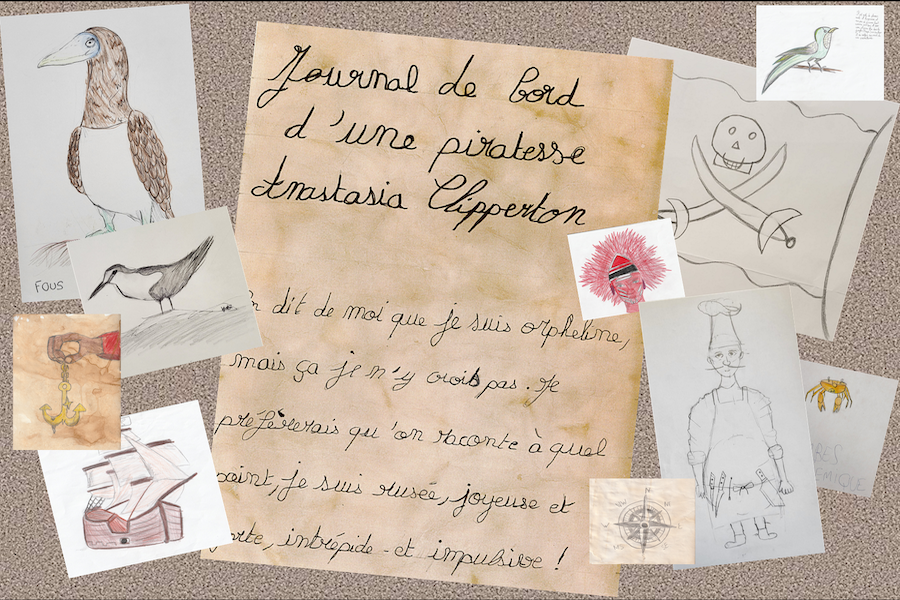 Journal de bord
d'une piratesse
Anastasia Clipperton
dit de moi que je suis orpheline,
mais ça je n'y crois pas. Je
préfèrerais qu'on raconte à quel
point, je suis rusée, joyeuse et
forte, intrépide et impulsive !
FOUS
N